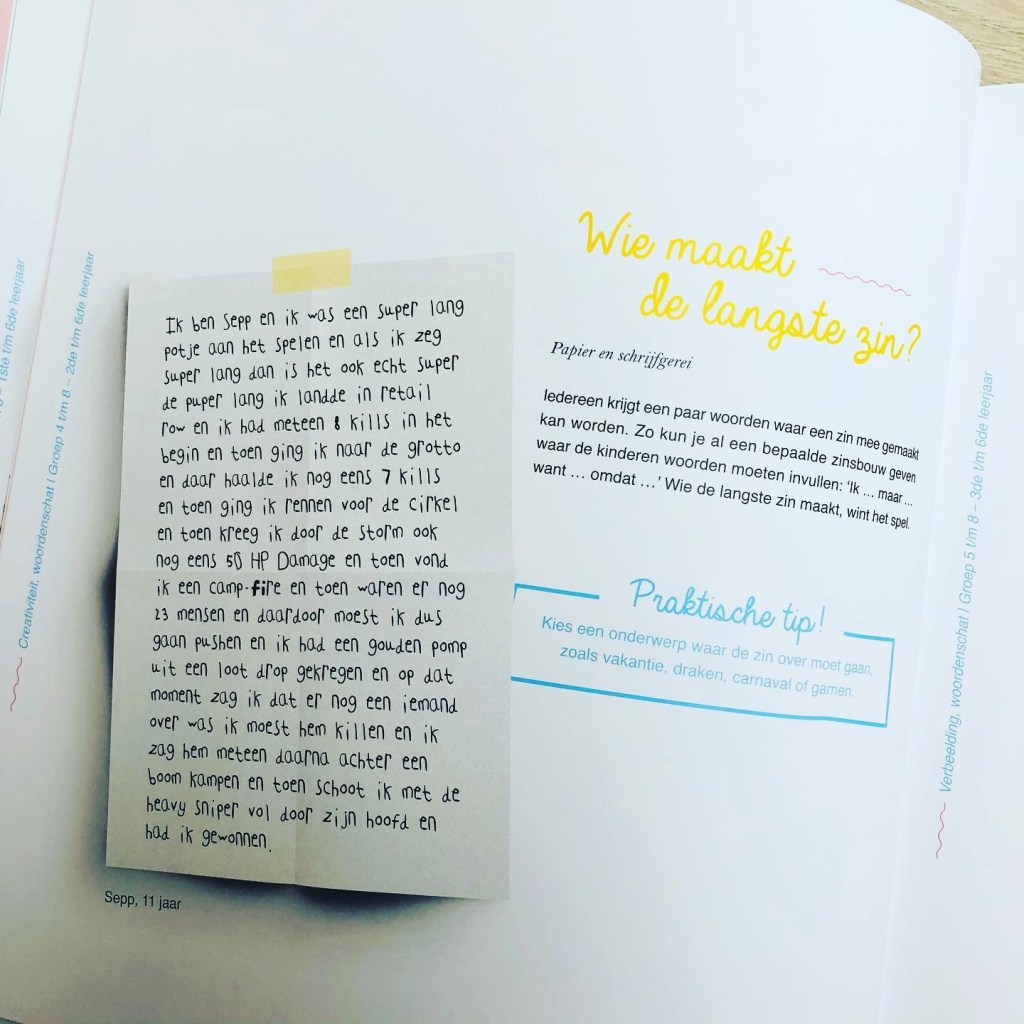 1ste t/m 6de leerjaar
Creativiteit, woordenschat | Groep 4 t/m 8 – 2de t/m 6de leerjaar
Ik ben Sepp en ik was een super lang
potje aan het spelen en als ik zeg
super lang dan is het ook echt super
de puper lang ik landde in retail
row en ik had meteen 8 kills in het
begin en toen ging ik naar de grotto
en daar haalde ik nog eens 7 kills
en toen ging ik rennen voor de cirkel
en toen kreeg ik door de storm ook
nog eens 50 HP Damage en toen vond
ik een camp-fire en toen waren er nog
23 mensen en daardoor moest ik dus
gaan pushen en ik had een gouden pomp
uit een loot drop gekregen en op dat
moment zag ik dat er nog een iemand
over was ik moest hem killen en ik
zag hem meteen daarna achter een
boom kampen en toen schoot ik met de
heavy sniper vol door zijn hoofd en
had ik gewonnen.
Sepp, 11 jaar
Wie maakt
de langste zin?
Papier en schrijfgerei
Iedereen krijgt een paar woorden waar een zin mee gemaakt
kan worden. Zo kun je al een bepaalde zinsbouw geven
waar de kinderen woorden moeten invullen: ‘Ik ... maar ...
want ... omdat ...’ Wie de langste zin maakt, wint het spel.
Praktische tip!
Kies een onderwerp waar de zin over moet gaan,
zoals vakantie, draken, carnaval of gamen.
Verbeelding, woordenschat | Groep 5 t/m 8 – 3de t/m 6de leerjaar